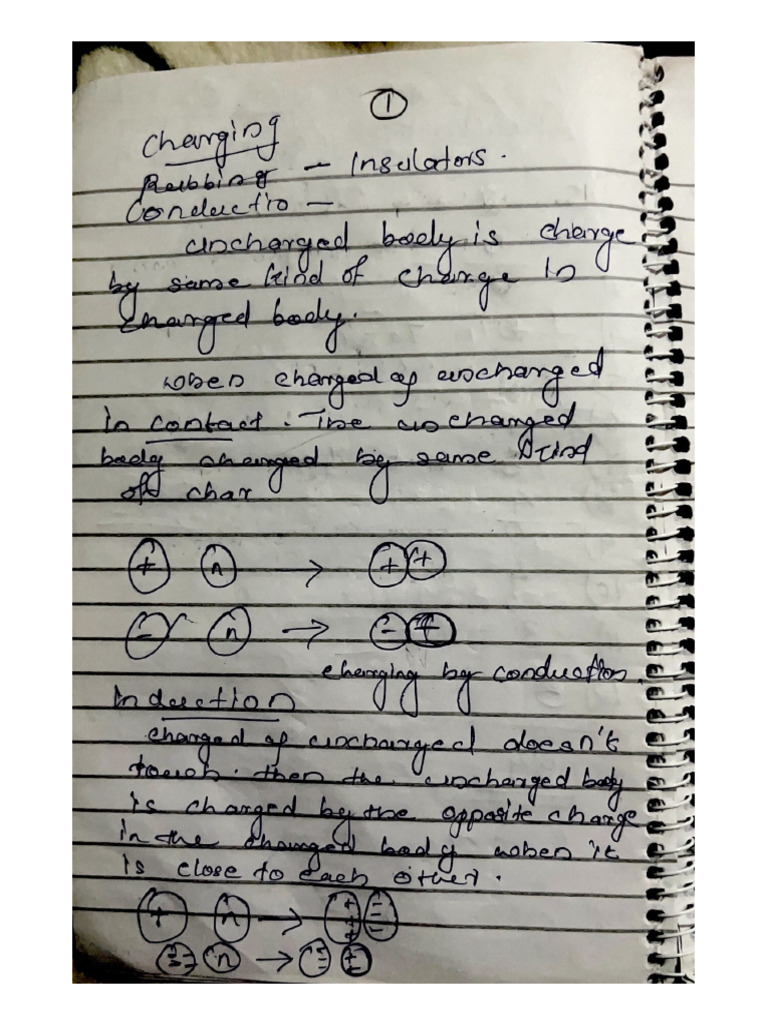 1
Charging
Rubbing - Insulators.
Conductio -
uncharged body is charge
by same kind of charge in
charged body.
when charged & uncharged
in contact. The uncharged
body charged by same kind
of char
+ n → + +
- n →  -
charging by conduction.
Induction
charged & uncharged doesn't
touch. then the uncharged body
is charged by the opposite charge
in the charged body when it
is close to each other.
+ n →
n →